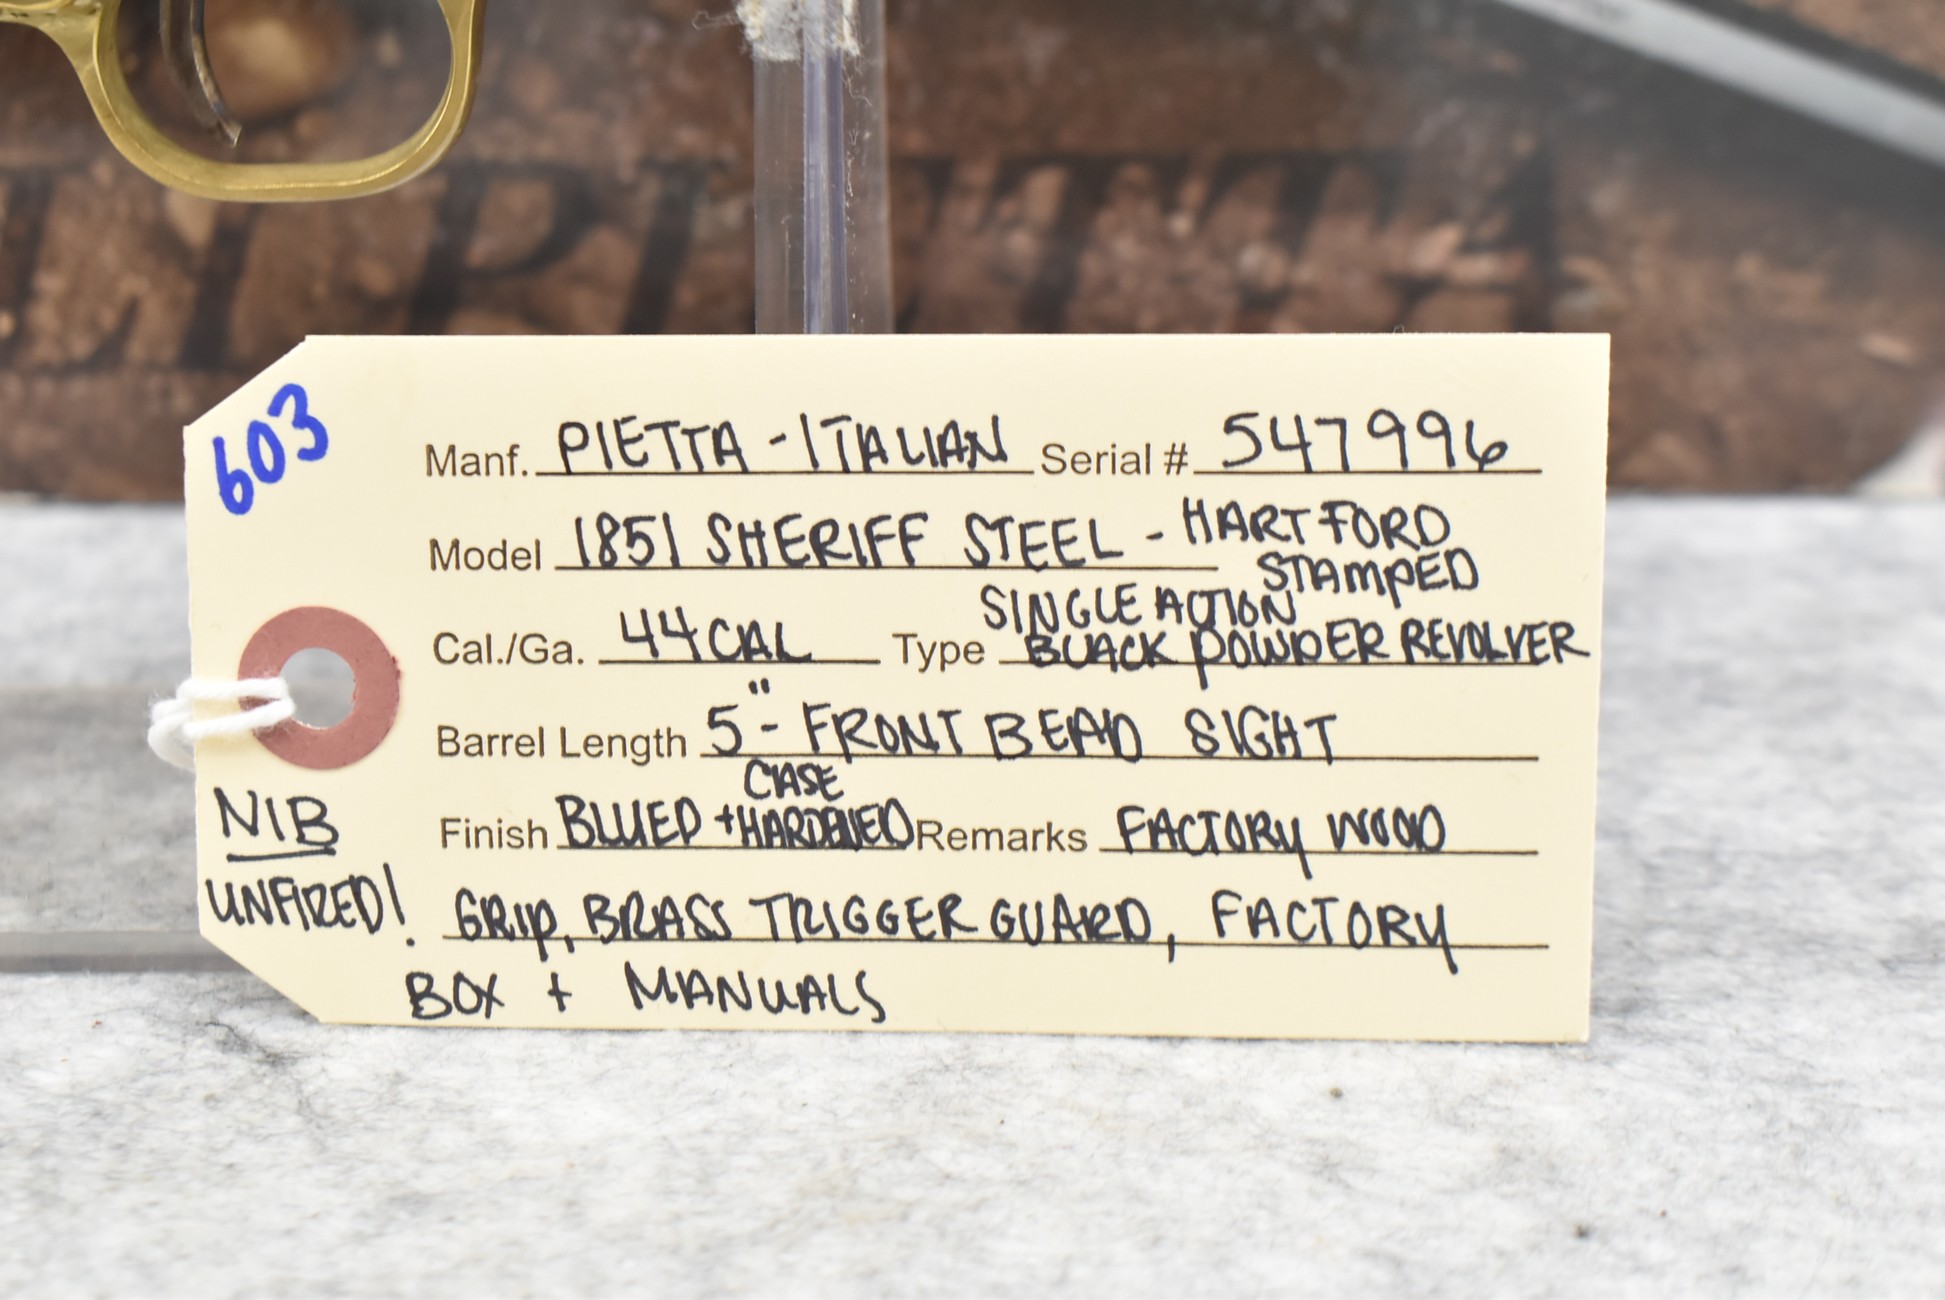 603
Manf. PIETTA - ITALIAN Serial # 547996
Model 1851 SHERIFF STEEL - HARTFORD
STAMPED
SINGLE ACTION
Cal./Ga. 44 CAL Type BLACK POWDER REVOLVER
Barrel Length 5" - FRONT BEAD SIGHT
CASE
Finish BLUED + HARDENED Remarks FACTORY WOOD
NIB
UNFIRED!
GRIP, BRASS TRIGGER GUARD, FACTORY
BOX + MANUALS